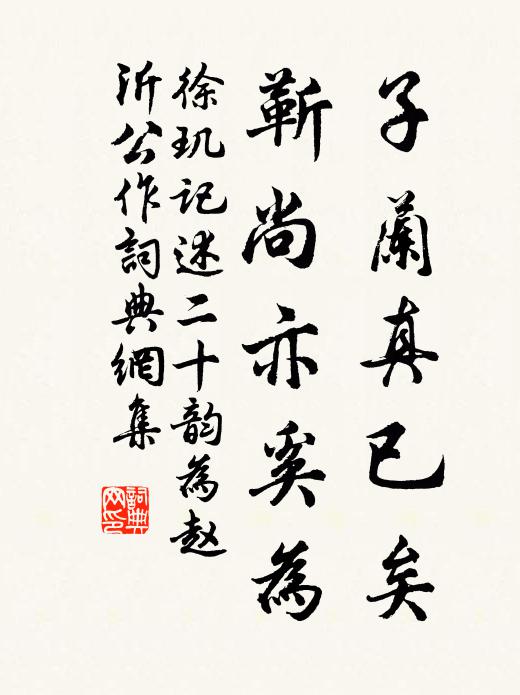 子蘭真已矣
靳尚亦奚為
徐玑記述二十韵為赵
沂公作詞典網集
詞典
网印